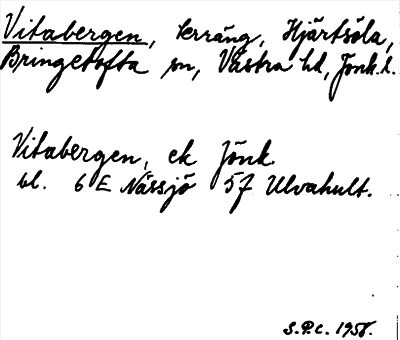 Vitabergen, terräng, Hjärtsöla,
Bringetofta sn, Västra hd, Jönk. l.
Vitabergen, ek Jönk.
bl. 6 E Nässjö 5f Ulvahult.
S.P.C. 1958.